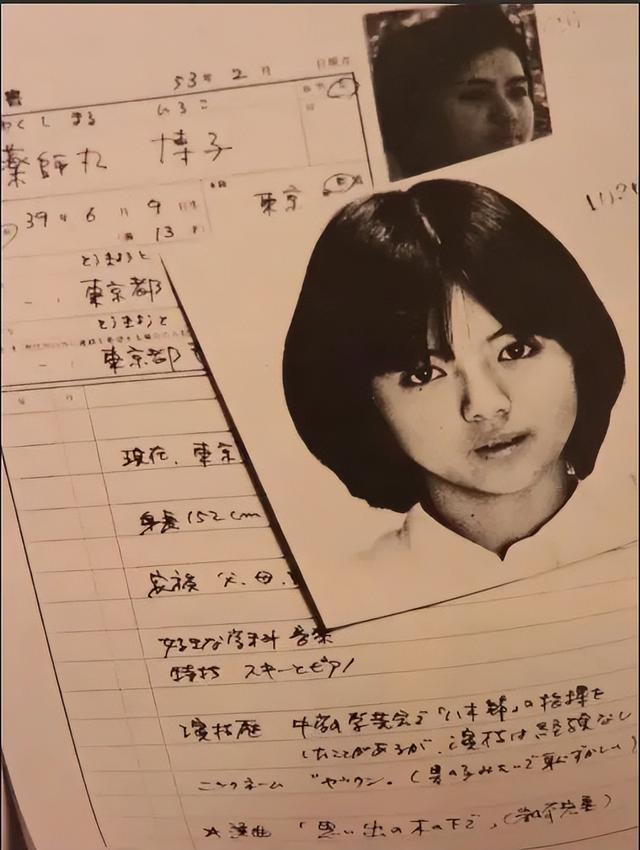 53年 2月 日現在
やくし まる ひろこ
薬師丸 博子
39年 6月 9日生
(満 13 才)
本籍 東京
とうきょうと
東京都
とうきょうと
東京都
年 月
現在、東京
身長 152cm
家族 父、母、
好きな学科 音楽
特技 スキーとピアノ
演技歴 中学の学芸会で「八木節」の指揮を
したことがあるが、演技は経験なし
ニックネーム "ヤックン。(男の子みたいで恥ずかしい)
「思い出の木の下で」